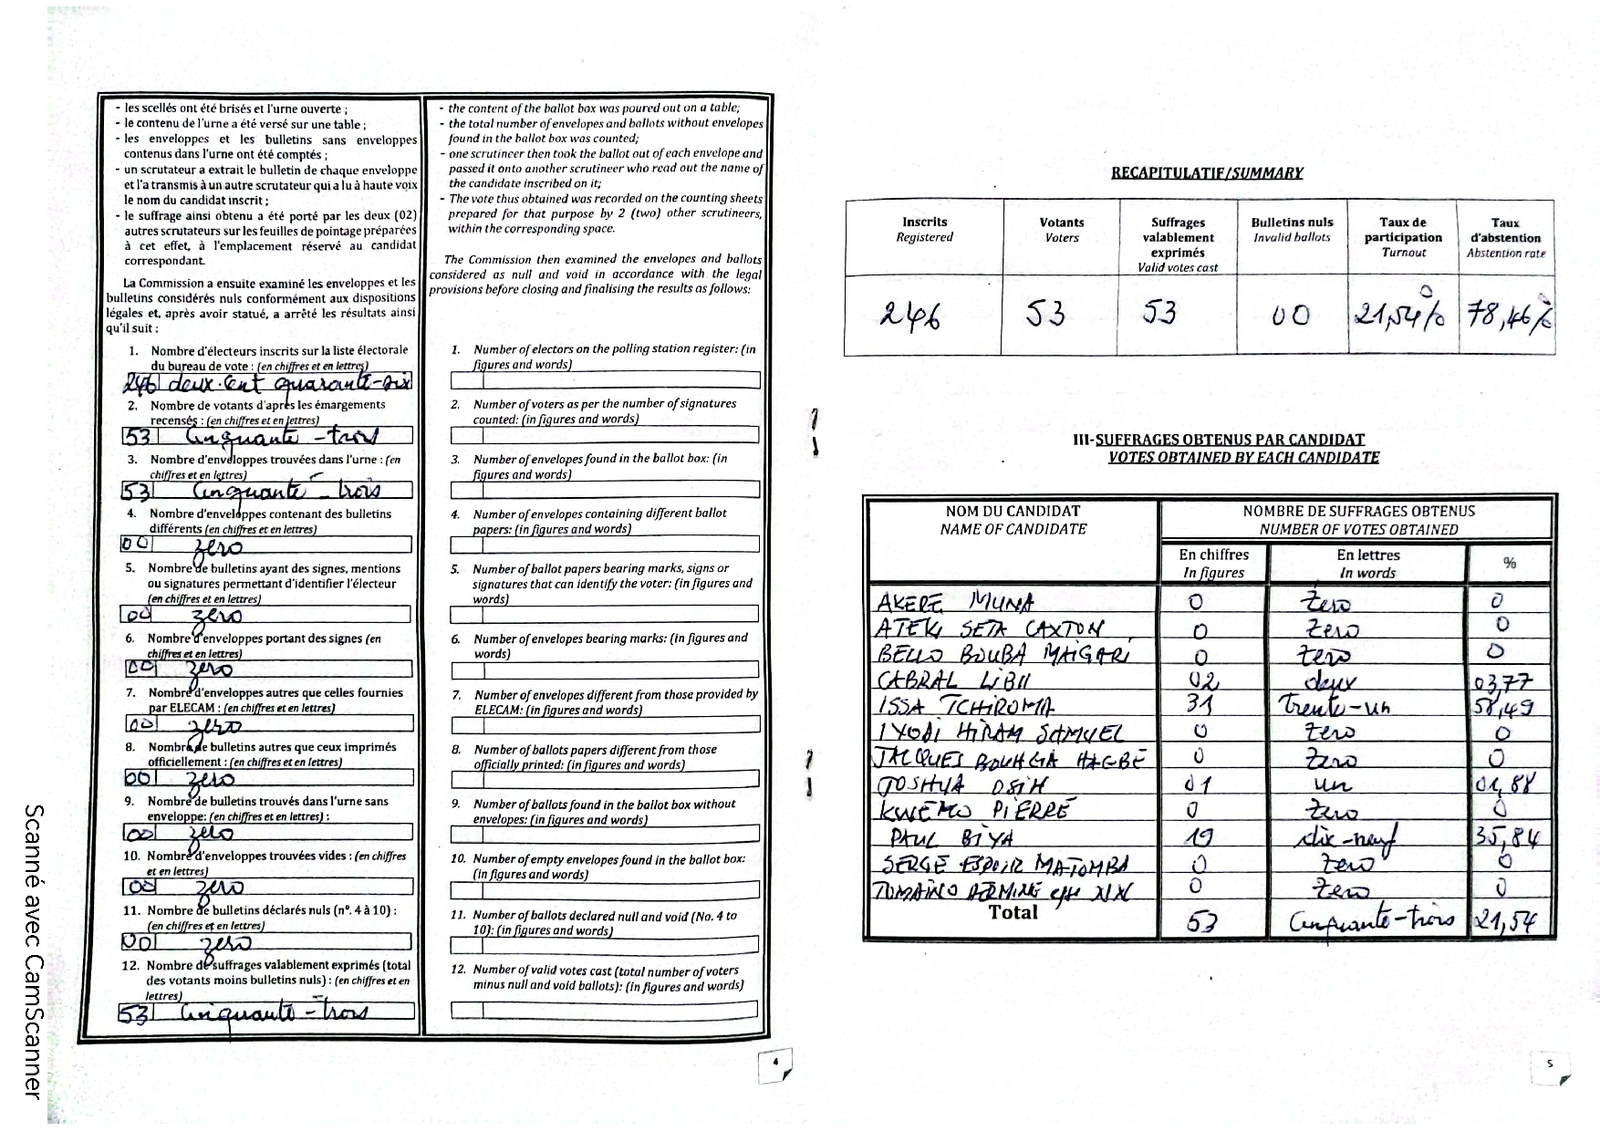 - les scellés ont été brisés et l'urne ouverte ;
- le contenu de l'urne a été versé sur une table ;
- les enveloppes et les bulletins sans enveloppes
contenus dans l'urne ont été comptés ;
- un scrutateur a extrait le bulletin de chaque enveloppe
et l'a transmis à un autre scrutateur qui a lu à haute voix
le nom du candidat inscrit ;
- le suffrage ainsi obtenu a été porté par les deux (02)
autres scrutateurs sur les feuilles de pointage préparées
à cet effet, à l'emplacement réservé au candidat
correspondant.
La Commission a ensuite examiné les enveloppes et les
bulletins considérés nuls conformément aux dispositions
légales et, après avoir statué, a arrêté les résultats ainsi
qu'il suit :
1. Nombre d'électeurs inscrits sur la liste électorale
du bureau de vote : (en chiffres et en lettres)
246 deux-cent quarante-six
2. Nombre de votants d'après les émargements
recensés : (en chiffres et en lettres)
53 Cinquante-trois
3. Nombre d'enveloppes trouvées dans l'urne : (en
chiffres et en lettres)
53 Cinquante-trois
4. Nombre d'enveloppes contenant des bulletins
différents (en chiffres et en lettres)
00 zero
5. Nombre de bulletins ayant des signes, mentions
ou signatures permettant d'identifier l'électeur
(en chiffres et en lettres)
00 zero
6. Nombre d'enveloppes portant des signes (en
chiffres et en lettres)
00 zero
7. Nombre d'enveloppes autres que celles fournies
par ELECAM : (en chiffres et en lettres)
00 zero
8. Nombre de bulletins autres que ceux imprimés
officiellement : (en chiffres et en lettres)
00 zero
9. Nombre de bulletins trouvés dans l'urne sans
enveloppe: (en chiffres et en lettres) :
00 zero
10. Nombre d'enveloppes trouvées vides : (en chiffres
et en lettres)
00 zero
11. Nombre de bulletins déclarés nuls (n°. 4 à 10) :
(en chiffres et en lettres)
00 zero
12. Nombre de suffrages valablement exprimés (total
des votants moins bulletins nuls) : (en chiffres et en
lettres)
53 Cinquante-trois
- the content of the ballot box was poured out on a table;
- the total number of envelopes and ballots without envelopes
found in the ballot box was counted;
- one scrutineer then took the ballot out of each envelope and
passed it onto another scrutineer who read out the name of
the candidate inscribed on it;
- The vote thus obtained was recorded on the counting sheets
prepared for that purpose by 2 (two) other scrutineers,
within the corresponding space.
The Commission then examined the envelopes and ballots
considered as null and void in accordance with the legal
provisions before closing and finalising the results as follows:
1. Number of electors on the polling station register: (in
figures and words)
2. Number of voters as per the number of signatures
counted: (in figures and words)
3. Number of envelopes found in the ballot box: (in
figures and words)
4. Number of envelopes containing different ballot
papers: (in figures and words)
5. Number of ballot papers bearing marks, signs or
signatures that can identify the voter: (in figures and
words)
6. Number of envelopes bearing marks: (in figures and
words)
7. Number of envelopes different from those provided by
ELECAM: (in figures and words)
8. Number of ballots papers different from those
officially printed: (in figures and words)
9. Number of ballots found in the ballot box without
envelopes: (in figures and words)
10. Number of empty envelopes found in the ballot box:
(in figures and words)
11. Number of ballots declared null and void (No. 4 to
10): (in figures and words)
12. Number of valid votes cast (total number of voters
minus null and void ballots): (in figures and words)
4
RECAPITULATIF/SUMMARY
Inscrits Registered Votants Voters Suffrages valablement exprimés Valid votes cast Bulletins nuls Invalid ballots Taux de participation Turnout Taux d'abstention Abstention rate
246 53 53 00 21,54% 78,46%
III-SUFFRAGES OBTENUS PAR CANDIDAT
VOTES OBTAINED BY EACH CANDIDATE
NOM DU CANDIDAT NOMBRE DE SUFFRAGES OBTENUS
NAME OF CANDIDATE NUMBER OF VOTES OBTAINED
En chiffres En lettres %
In figures In words
AKERE MUNA 0 Zero 0
ATEKI SETA CAXTON 0 Zero 0
BELLO BOUBA MAIGARI 0 Zero 0
CABRAL LIBII 02 deux 03,77
ISSA TCHIROMA 31 Trente-un 58,49
IYODI HIRAM SAMUEL 0 Zero 0
JACQUES BOUHGA HAGBE 0 Zero 0
JOSHUA OSIH 01 un 01,88
KWEMO PIERRE 0 Zero 0
PAUL BIYA 19 dix-neuf 35,84
SERGE ESPOIR MATOMBA 0 Zero 0
TOMAINO 0 Zero 0
Total 53 Cinquante-trois 21,54
5
Scanné avec CamScanner